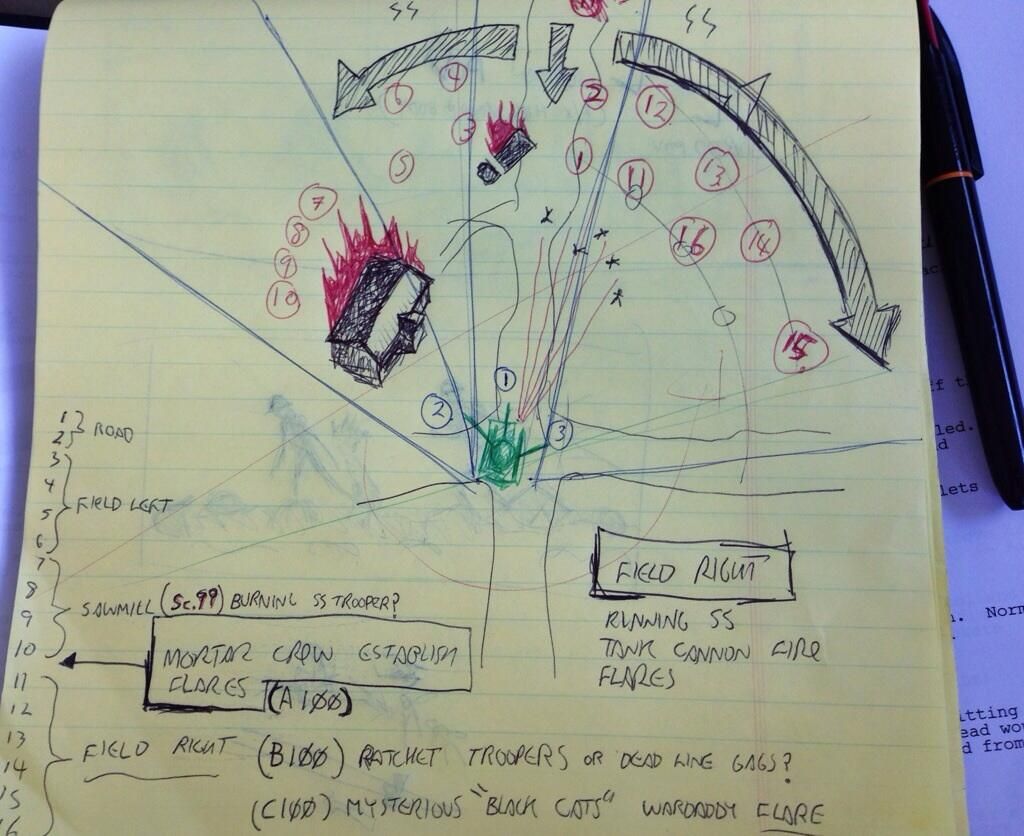 SS
SS
6
4
2
12
3
1
11
13
5
7
8
9
10
16
14
15
1
2
3
1 } ROAD
2
3
4
5 FIELD LEFT
6
7
8
9 SAWMILL (SC.99) BURNING SS TROOPER?
10
MORTAR CROW ESTABLISH
FLARES (A100)
FIELD RIGHT
RUNNING SS
TANK CANNON FIRE
FLARES
11
12
13
14 FIELD RIGHT (B100) RATCHET TROOPERS OR DEAD LINE GAGS?
15
16
(C100) MYSTERIOUS "BLACK CATS" WARDADDY FLARE
led.
lets
Norm
itting
ead wou
d from